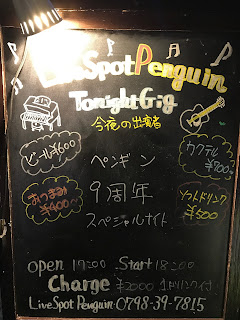 Live Spot Penguin
Tonight Gig
今夜の出演者
ビール¥600
カクテル
¥700~
ペンギン
おつまみ
¥400~
9周年
ソフトドリンク
¥500
スペシャルナイト
open 17:00 Start 18:00
Charge ¥2000 1ドリンク付
Live Spot Penguin 0798-39-7815